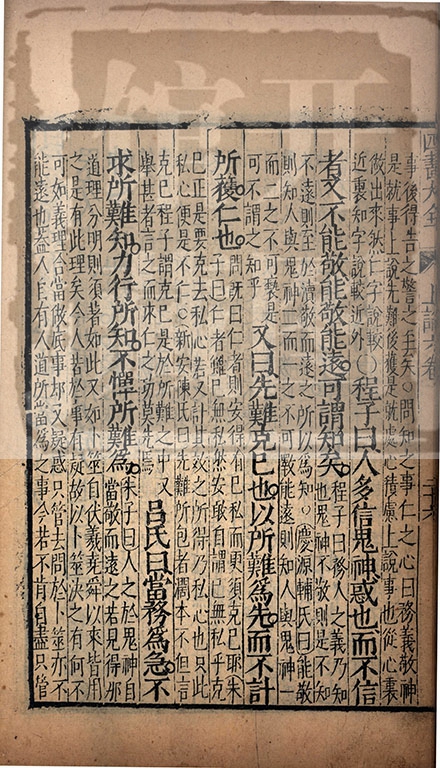 四書大全 上論六卷
事後得告之警之去矣○問知之事仁之心曰務義敬神
是就事上說先難後獲是就處心積慮上說事也從心裏
做出來然仁字說較
近裏知字說較近外○
程子曰人多信鬼神惑也而不信
者又不能敬能敬能遠可謂知矣
程子曰務人之義乃知
也鬼神不敬則是不知
不遠則至於瀆敬而遠之所以為知○慶源輔氏曰能敬
則知人與鬼神二而一之不可斁能遠則知人與鬼神一
而二之不可褻是
可不謂之知乎
又曰先難克巳也以所難為先而不計
所獲仁也
問既曰仁者則安得有巳私而更須克巳耶朱
子曰仁者雖巳無私然安敢自謂巳無私乎克
巳正是要克去私心若又計其效之所得乃私心也只此
私心便是不仁○新安陳氏曰先難所包者濶本不但言
克巳程子謂克巳是於所難之中又
舉甚者言之而求仁之功莫先焉
呂氏曰當務為急不
求所難知力行所知不憚所難為
朱子曰人之於鬼神自
當敬而遠之若見得那
道理分明則須著如此又如卜筮自伏羲堯舜以來皆用
之是有此理矣今人若於事有疑敬以卜筮決之有何不
可如義理合當做底事却又疑惑只管去問於卜筮亦不
能遠也蓋人自有人道所當為之事今若不肯自盡只管